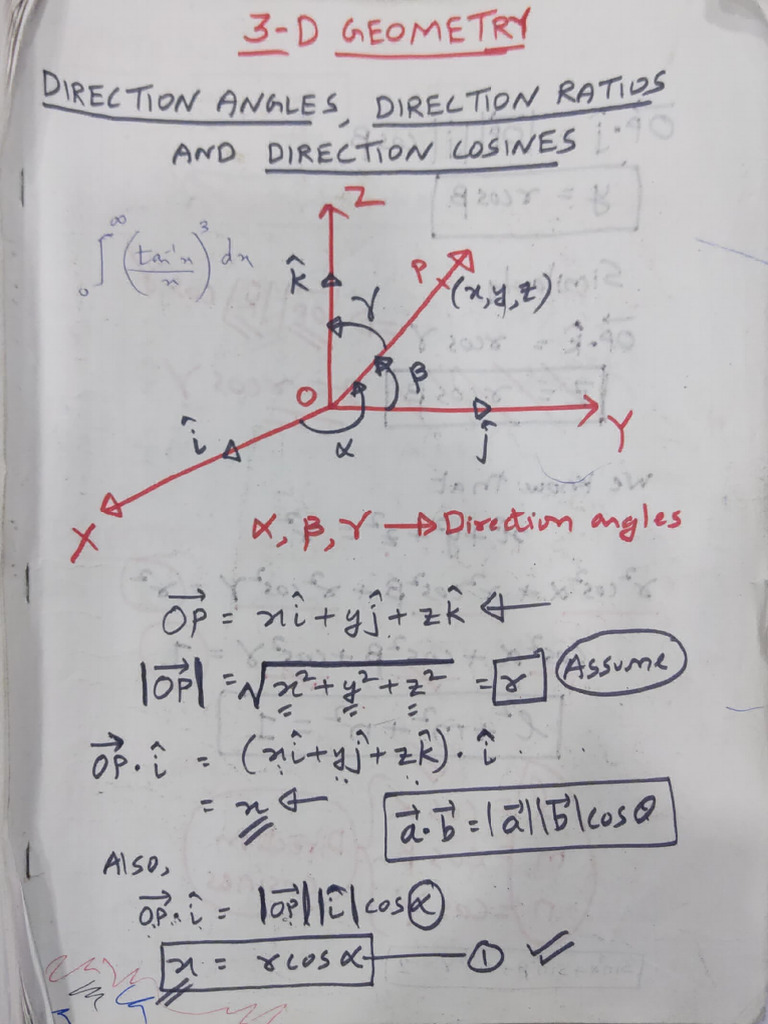 3-D GEOMETRY
DIRECTION ANGLES, DIRECTION RATIOS
AND DIRECTION COSINES
∫₀^∞ (tan⁻¹x/x)³ dx
Z
k̂
γ
P
(x,y,z)
O
β
α
î
ĵ
X
Y
α, β, γ → Direction angles
OP⃗ = xî + yĵ + zk̂ ←
|OP⃗| = √x²+y²+z² = r Assume
OP⃗·î = (xî+yĵ+zk̂)·î
= x ←
a⃗·b⃗ = |a⃗||b⃗|cosθ
Also,
OP⃗·î = |OP⃗||î|cosα
x = rcosα — ①